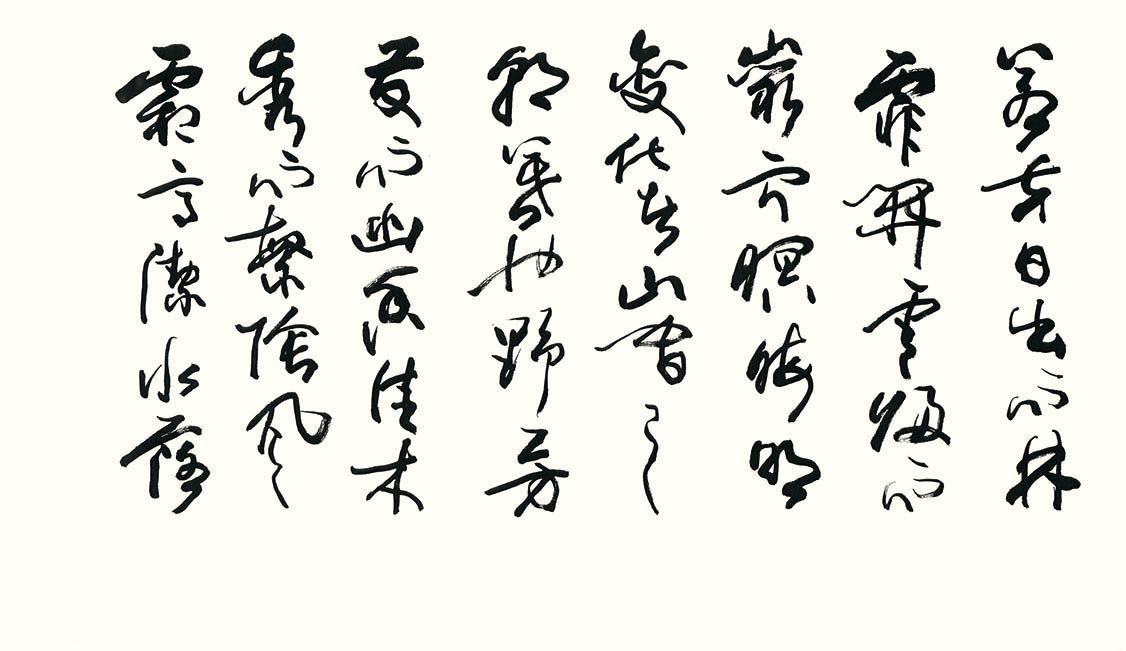 若夫日出而林
霏開雲歸而
巖穴暝晦明
變化者山間之
朝暮也野芳
發而幽香佳木
秀而繁陰風
霜高潔水落